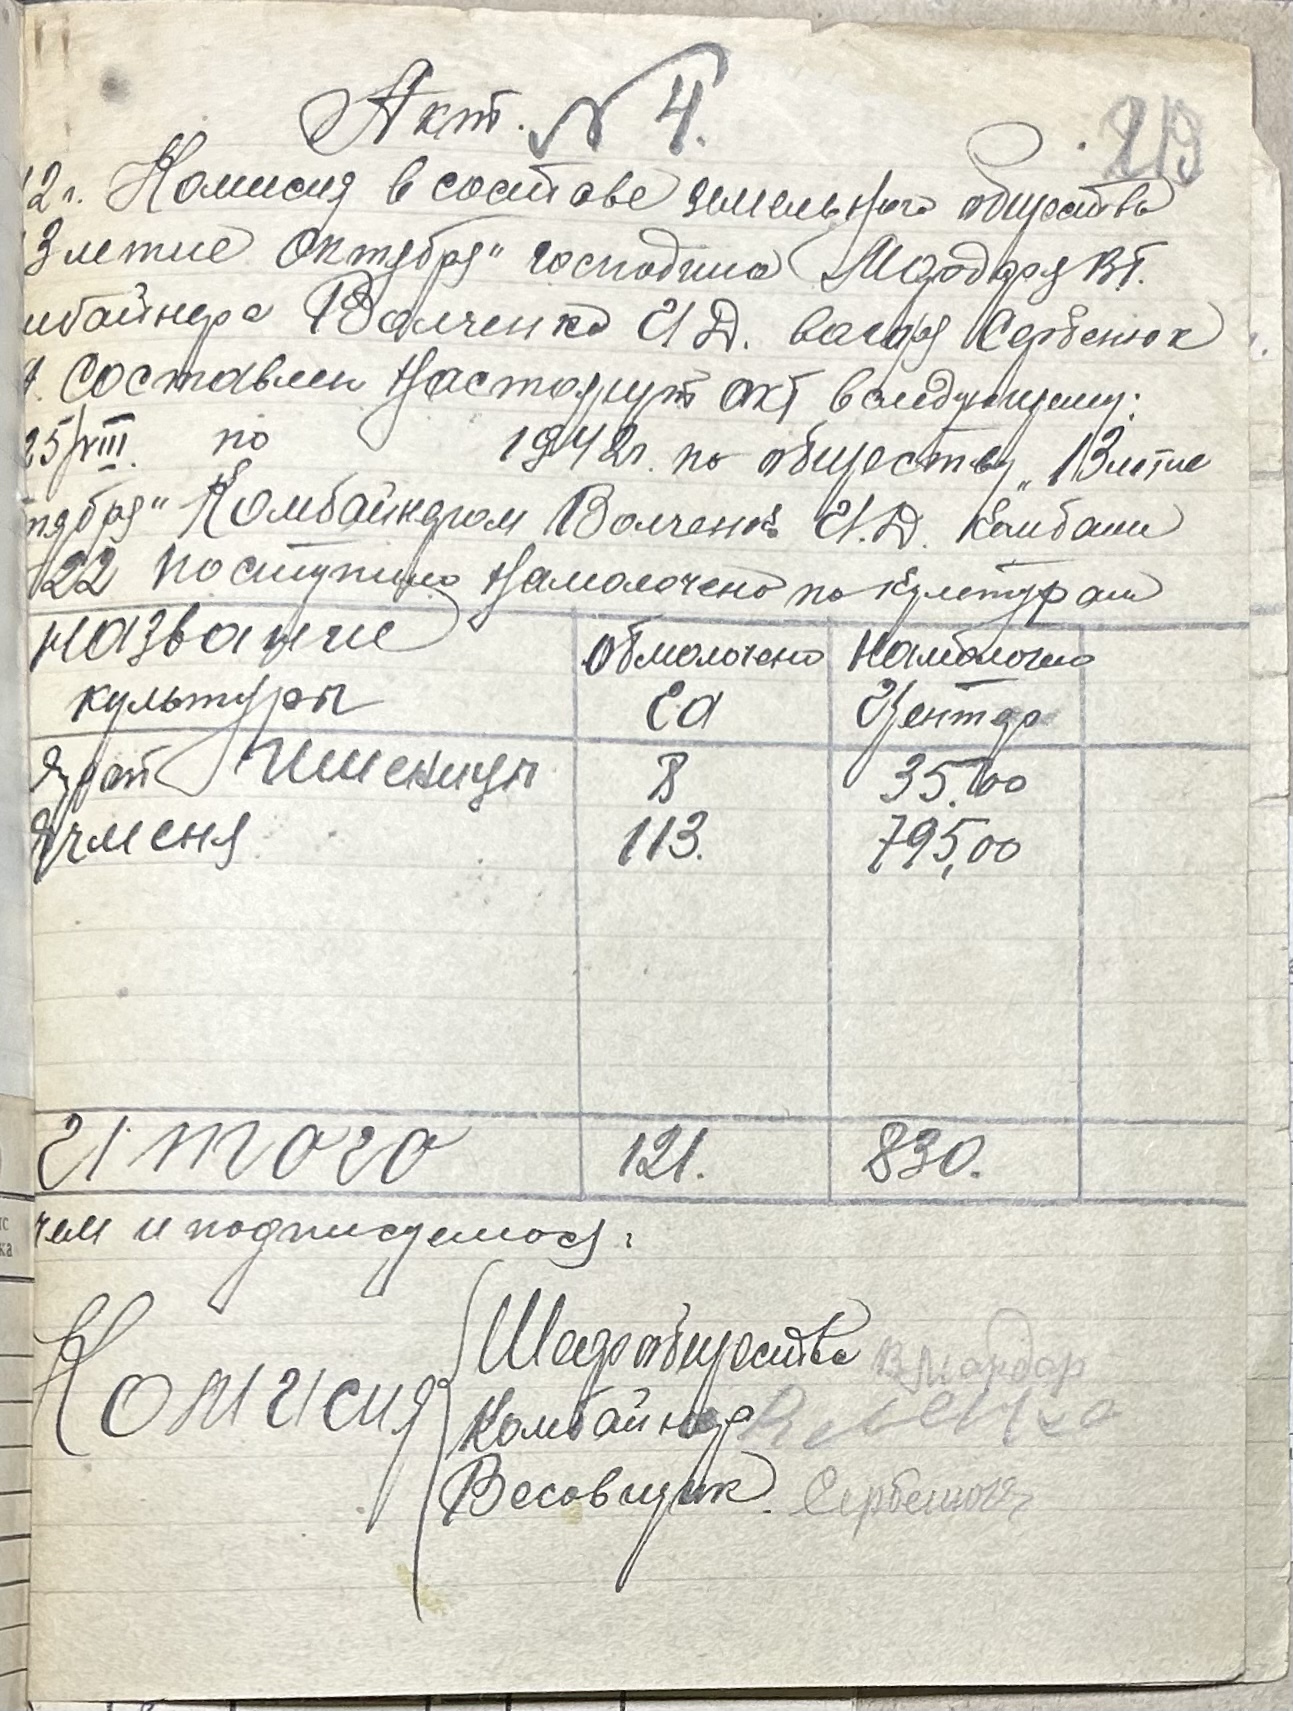 Акт. № 4.
213
42г. Комисия в составе земельного общества
13 летие Октября" господина В.Т.
мбайнера Волченко И.Д. Сербенюк
А. Составлен настоящий акт в следующему:
25/VIII. по 1942г. по обществу „13 летие
тября" Комбайнером Волченко И.Д. Комбайн
122 поступило намолочено по культурам
название обмолочено намолочено
культуры Га Центнер
Яров Пшеницы 8 35.00
Ячменя 113. 795,00
Итого 121. 830.
чем и подписуемося:
Комисия
общества
Комбайнер
Весовщик. Сербенюк